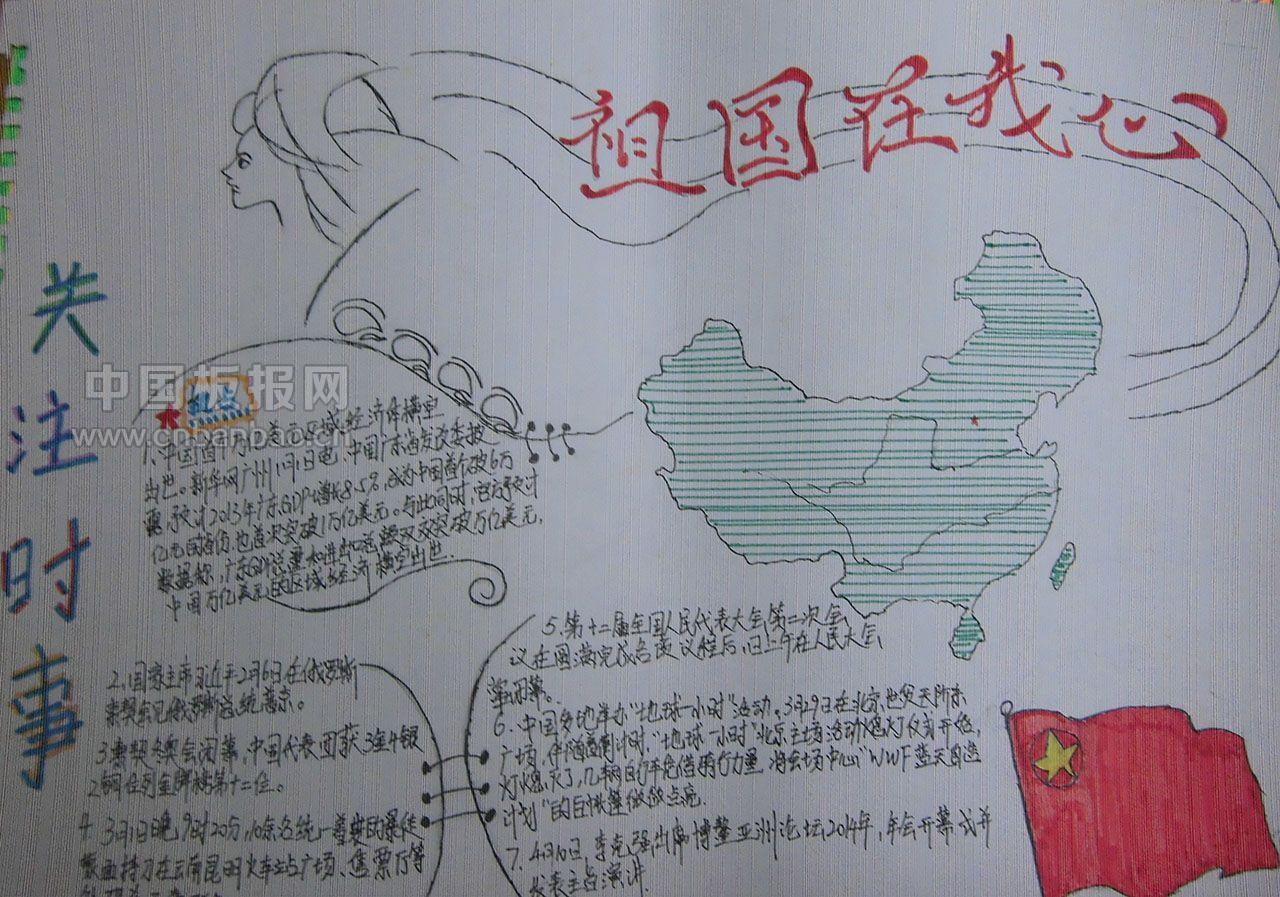 祖国在我心
关注时事
中国板报网
www.cnbanbao.cn
1、中国首个万亿美元区域经济体横空
出世。新华网广州1月1日电,中国广东省发改委披
露,预计2013年广东GDP增长8.5%,成为中国首个破6万
亿元的省份,也首次突破1万亿美元。与此同时,官方预计
数据称,广东GDP总量和进出口总额双双突破万亿美元,
中国万亿美元的区域经济横空出世.
2、国家主席习近平2月6日在俄罗斯
索契会见俄罗斯总统普京。
3索契冬奥会闭幕,中国代表团获3金4银
2铜位列金牌榜第十二位。
4 3月1日晚9时20分,10余名统一着装的暴徒
蒙面持刀在云南昆明火车站广场、售票厅等
5、第十二届全国人民代表大会第二次会
议在圆满完成各项议程后,13日上午在人民大会
堂闭幕。
6、中国多地举办"地球一小时"活动。3月29日在北京世贸天阶东
广场,伴随着倒计时,"地球一小时"北京主场活动熄灯仪式开始,
灯熄灭了,几辆自行车凭借骑行力量 将会场中心"WWF蓝天自造
计划"的巨帐篷微微点亮.
7、4月10日,李克强出席博鳌亚洲论坛2014年,年会开幕式并
发表主旨演讲.